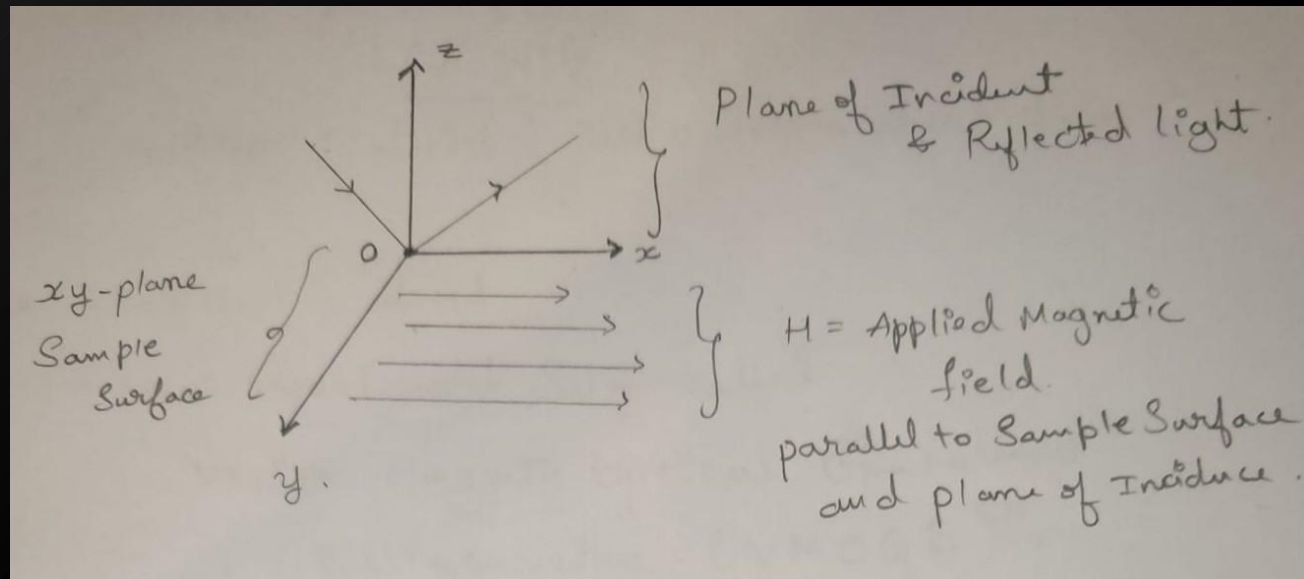 z
Plane of Incident
& Reflected light.
O
x
xy-plane
Sample
Surface
H = Applied Magnetic
field.
parallel to Sample Surface
and plane of Inciduce.
y.